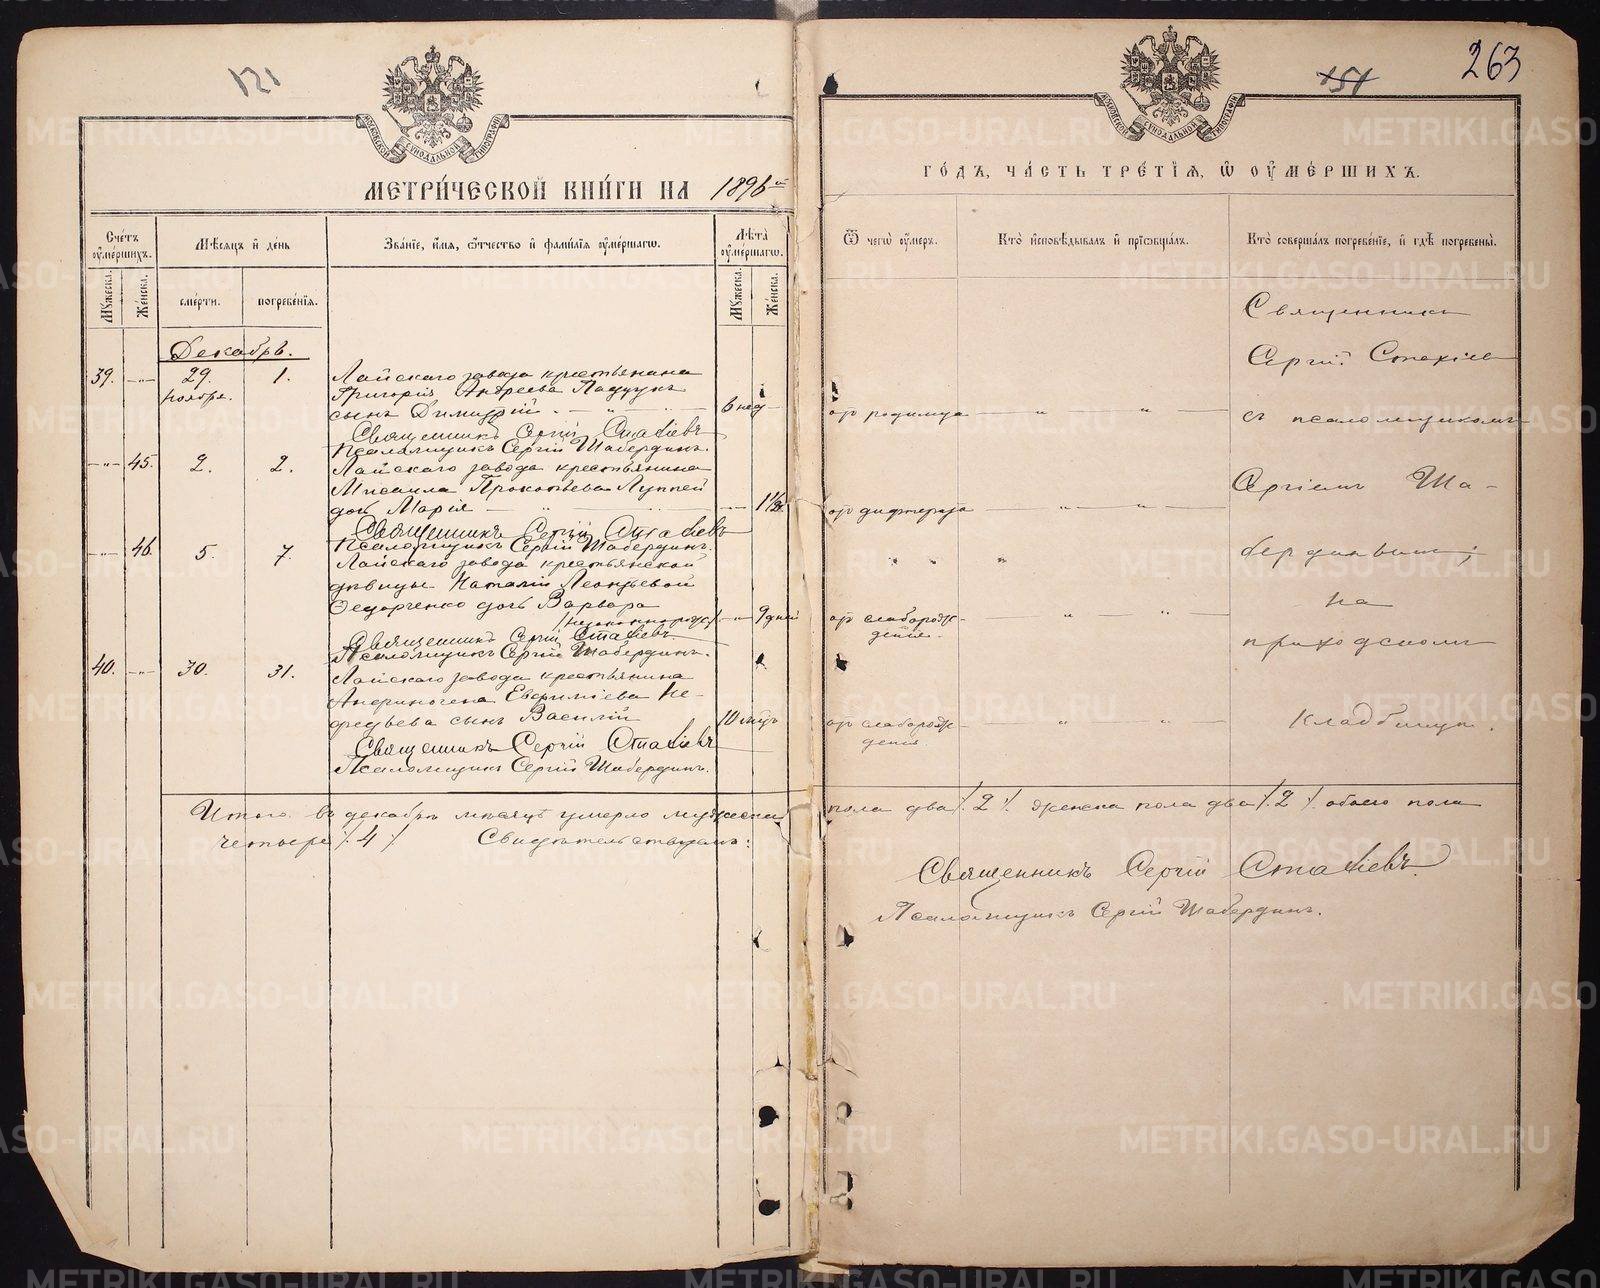 121
МОСКОВСКОЙ СѴНОДАЛЬНОЙ ТИПОГРАФІИ
МЕТРИ́ЧЕСКОЙ КНИ́ГИ НА 1896й
Сче́тъ ᲂу҆ме́ршихъ.
Мѣ́сяцъ и҆ де́нь
Зва́нїе, и҆́мя, ѻ҆́тчество и҆ фами́лїя ᲂу҆ме́ршагѡ.
Лѣ́та ᲂу҆ме́ршагѡ.
Мꙋ́жеска.
Же́нска.
сме́рти.
погребе́нїя.
Мꙋ́жеска.
Же́нска.
Декабрь.
39. 29. ноября. 1. Лайскаго завода крестьянина
Григорія Андреева
сынъ Димитрій 6 нед
Священникъ Сергій Стахіевъ
Псаломщикъ Сергій Шабердинъ.
45. 2. 2. Лайскаго завода крестьянина
Мисаила Прокопьева
дочь Марія 1½
Священникъ Сергій Стахіевъ
Псаломщикъ Сергій Шабердинъ.
46. 5. 7. Лайскаго завода крестьянской
дѣвицы Наталіи Леонтьевой
Федорченко дочь Варвара
/незаконнорожд/ 9 дней
Священникъ Сергій Стахіевъ
Псаломщикъ Сергій Шабердинъ.
40. 30. 31. Лайскаго завода крестьянина
Андриногена Евфиміева Не-
федьева сынъ Василій 10 мцъ
Священникъ Сергій Стахіевъ
Псаломщикъ Сергій Шабердинъ.
Итого въ декабрѣ мѣсяцѣ умерло мужеска
четыре /.4./ Свидѣтельствуемъ:
151
263
МОСКОВСКОЙ СѴНОДАЛЬНОЙ ТИПОГРАФІИ
ГО́ДЪ, ЧА́СТЬ ТРЕ́ТЇЯ, Ѡ҆ ОУ҆МЕ́РШИХЪ.
Ѿ чегѡ̀ ᲂу҆́меръ.
Кто̀ и҆сповѣ́дывалъ и҆ прїѡбща́лъ.
Кто̀ соверша́лъ погребе́нїе, и҆ гдѣ̀ погребены̀.
Священникъ
Сергій Стахіев
отъ родимца
съ псаломщикомъ
Сергіемъ Ша-
отъ дифтерита
бердинымъ;
на
отъ слаборож-
денія.
приходскомъ
отъ слаборож-
денія.
кладбищѣ.
пола два /.2./. женска пола два /.2./. обоего пола
Священникъ Сергій Стахіевъ.
Псаломщикъ Сергій Шабердинъ.
METRIKI.GASO-URAL.RU